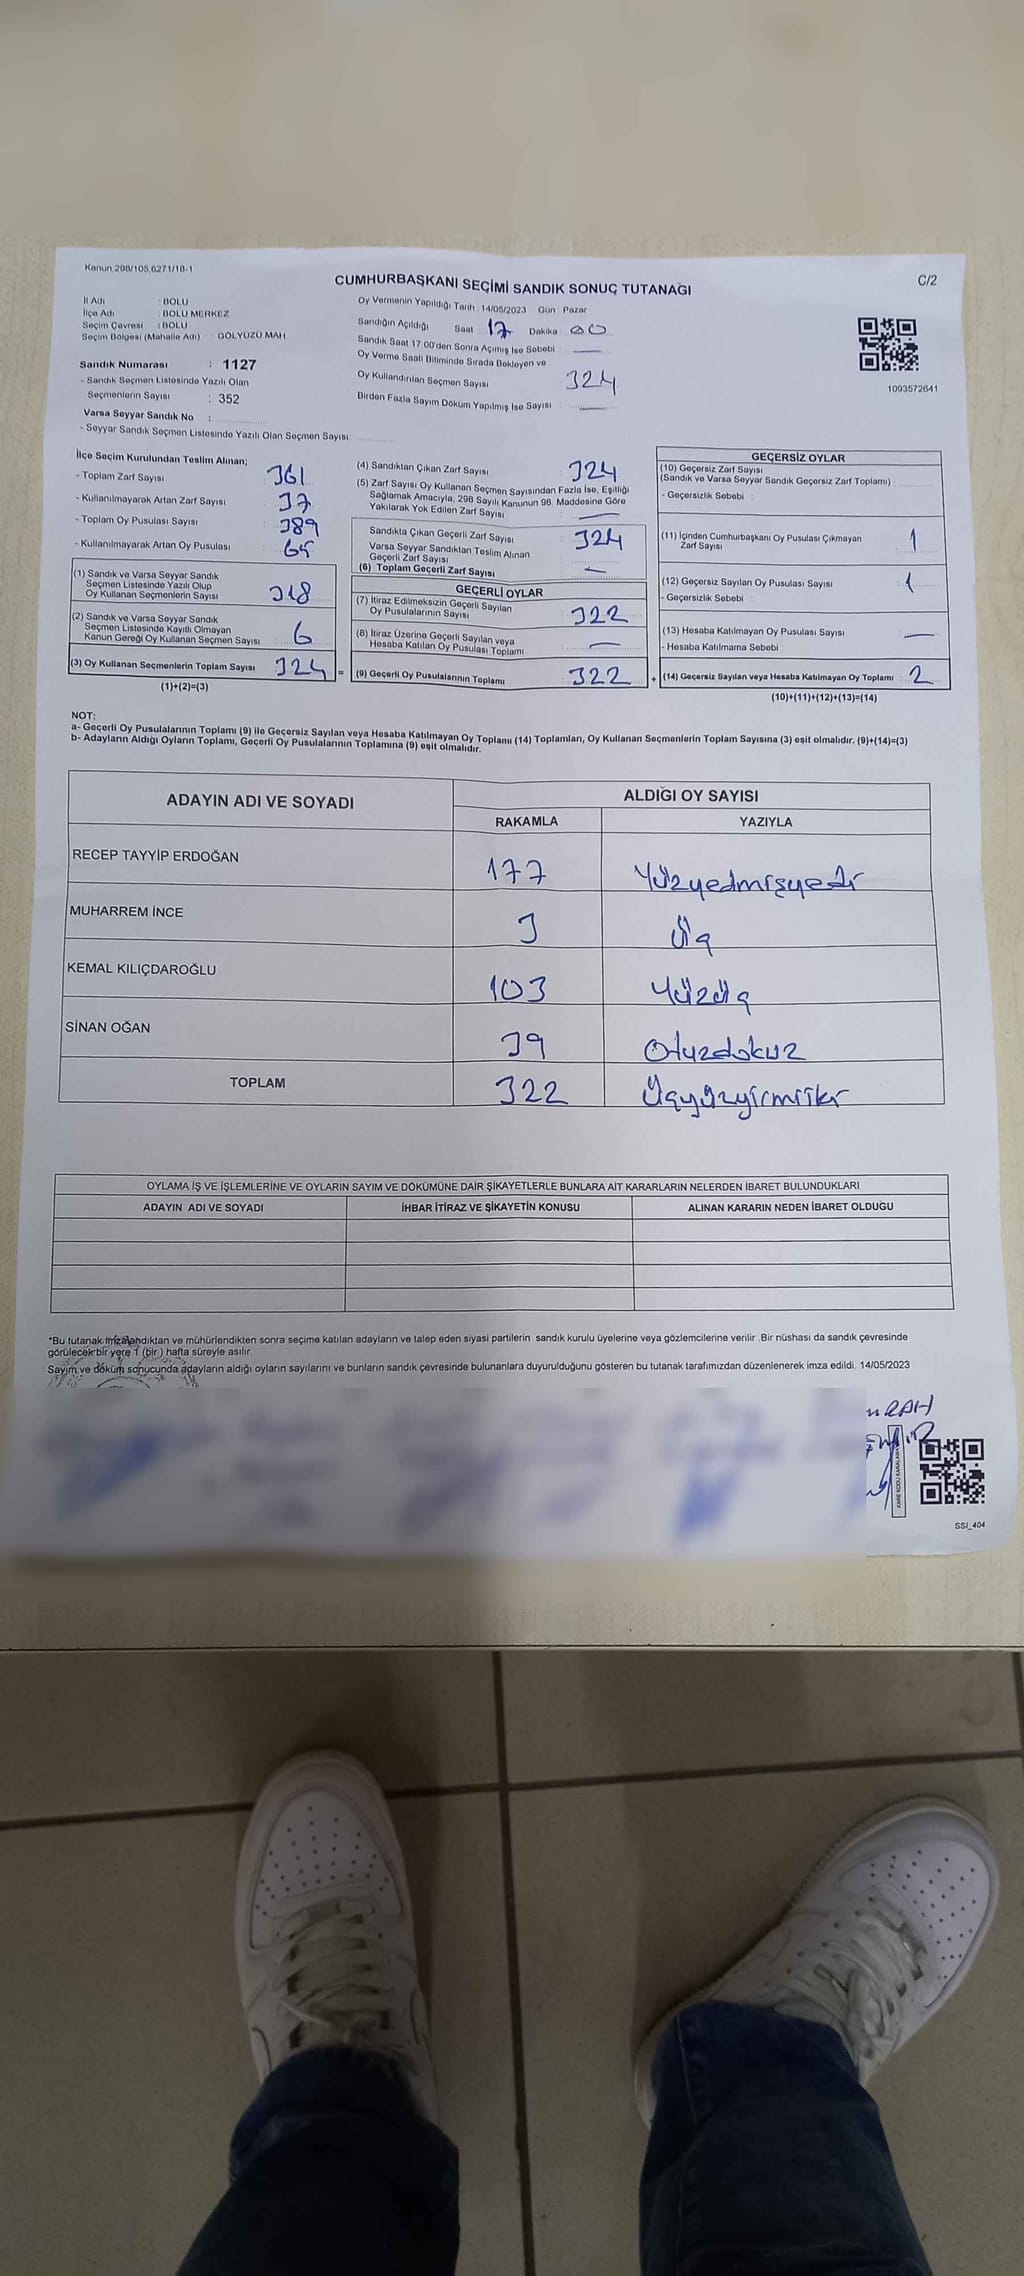 Kanun:298/105,6271/18-1
CUMHURBAŞKANI SEÇİMİ SANDIK SONUÇ TUTANAĞI
C/2
İl Adı : BOLU
İlçe Adı : BOLU MERKEZ
Seçim Çevresi : BOLU
Seçim Bölgesi (Mahalle Adı) : GÖLYÜZÜ MAH
Sandık Numarası : 1127
- Sandık Seçmen Listesinde Yazılı Olan
Seçmenlerin Sayısı : 352
Varsa Seyyar Sandık No :
- Seyyar Sandık Seçmen Listesinde Yazılı Olan Seçmen Sayısı:
Oy Vermenin Yapıldığı Tarih : 14/05/2023 Gün : Pazar
Sandığın Açıldığı Saat 17 Dakika 00
Sandık Saat 17.00'den Sonra Açımış İse Sebebi
Oy Verme Saati Bitiminde Sırada Bekleyen ve
Oy Kullandırılan Seçmen Sayısı 324
Birden Fazla Sayım Döküm Yapılmış İse Sayısı :
1093572641
İlçe Seçim Kurulundan Teslim Alınan;
- Toplam Zarf Sayısı 361
- Kullanılmayarak Artan Zarf Sayısı 37
- Toplam Oy Pusulası Sayısı 389
- Kullanılmayarak Artan Oy Pusulası 65
(1) Sandık ve Varsa Seyyar Sandık
Seçmen Listesinde Yazılı Olup
Oy Kullanan Seçmenlerin Sayısı 318
(2) Sandık ve Varsa Seyyar Sandık
Seçmen Listesinde Kayıtlı Olmayan
Kanun Gereği Oy Kullanan Seçmen Sayısı : 6
(3) Oy Kullanan Seçmenlerin Toplam Sayısı 324 =
(1)+(2)=(3)
(4) Sandıktan Çıkan Zarf Sayısı 324
(5) Zarf Sayısı Oy Kullanan Seçmen Sayısından Fazla İse, Eşitliği
Sağlamak Amacıyla, 298 Sayılı Kanunun 98. Maddesine Göre
Yakılarak Yok Edilen Zarf Sayısı
Sandıkta Çıkan Geçerli Zarf Sayısı 324
Varsa Seyyar Sandıktan Teslim Alınan
Geçerli Zarf Sayısı
(6) Toplam Geçerli Zarf Sayısı
GEÇERLİ OYLAR
(7) İtiraz Edilmeksizin Geçerli Sayılan
Oy Pusulalarının Sayısı 322
(8) İtiraz Üzerine Geçerli Sayılan veya
Hesaba Katılan Oy Pusulası Toplamı
(9) Geçerli Oy Pusulalarının Toplamı 322 +
GEÇERSİZ OYLAR
(10) Geçersiz Zarf Sayısı
(Sandık ve Varsa Seyyar Sandık Geçersiz Zarf Toplamı)
- Geçersizlik Sebebi :
(11) İçinden Cumhurbaşkanı Oy Pusulası Çıkmayan
Zarf Sayısı 1
(12) Geçersiz Sayılan Oy Pusulası Sayısı 1
- Geçersizlik Sebebi :
(13) Hesaba Katılmayan Oy Pusulası Sayısı
- Hesaba Katılmama Sebebi
(14) Geçersiz Sayılan veya Hesaba Katılmayan Oy Toplamı : 2
(10)+(11)+(12)+(13)=(14)
NOT:
a- Geçerli Oy Pusulalarının Toplamı (9) ile Geçersiz Sayılan veya Hesaba Katılmayan Oy Toplamı (14) Toplamları, Oy Kullanan Seçmenlerin Toplam Sayısına (3) eşit olmalıdır. (9)+(14)=(3)
b- Adayların Aldığı Oyların Toplamı, Geçerli Oy Pusulalarının Toplamına (9) eşit olmalıdır.
ADAYIN ADI VE SOYADI
ALDIĞI OY SAYISI
RAKAMLA YAZIYLA
RECEP TAYYİP ERDOĞAN 177 Yüzyedmişyedi
MUHARREM İNCE 3 Üç
KEMAL KILIÇDAROĞLU 103 Yüzüç
SİNAN OĞAN 39 Otuzdokuz
TOPLAM 322 Üçyüzyirmiiki
OYLAMA İŞ VE İŞLEMLERİNE VE OYLARIN SAYIM VE DÖKÜMÜNE DAİR ŞİKAYETLERLE BUNLARA AİT KARARLARIN NELERDEN İBARET BULUNDUKLARI
ADAYIN ADI VE SOYADI İHBAR İTİRAZ VE ŞİKAYETİN KONUSU ALINAN KARARIN NEDEN İBARET OLDUĞU
*Bu tutanak imzalandıktan ve mühürlendikten sonra seçime katılan adayların ve talep eden siyasi partilerin sandık kurulu üyelerine veya gözlemcilerine verilir. Bir nüshası da sandık çevresinde
görülecek bir yere 1 (bir ) hafta süreyle asılır.
Sayım ve döküm sonucunda adayların aldığı oyların sayılarını ve bunların sandık çevresinde bulunanlara duyurulduğunu gösteren bu tutanak tarafımızdan düzenlenerek imza edildi. 14/05/2023
SSI_404